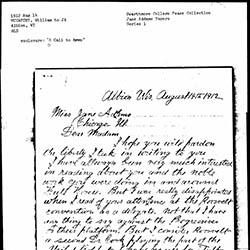 1912 Aug 14
McCarthy, William to JA
Albion, WI
ALS
enclosure: "A Call to Arms"
Swarthmore College Peace Collection
Jane Addams Papers
Series 1
Albion Wis, August 14th 1912.
Miss Jane Adams
Chicago Ill.
Dear Madam
I hope you will pardon
the liberty I take in writing to you
I have allways been very much interested
in reading about you and the noble
work you were doing in and around
Hull House. But I was really disappointed
when I read of your attendance at the Roosevelt
convention as a delegate. Not that I have
any thing to say against the Progressives
or their platform. But I consider Roosevelt
a second Dr Cook playing the part of the